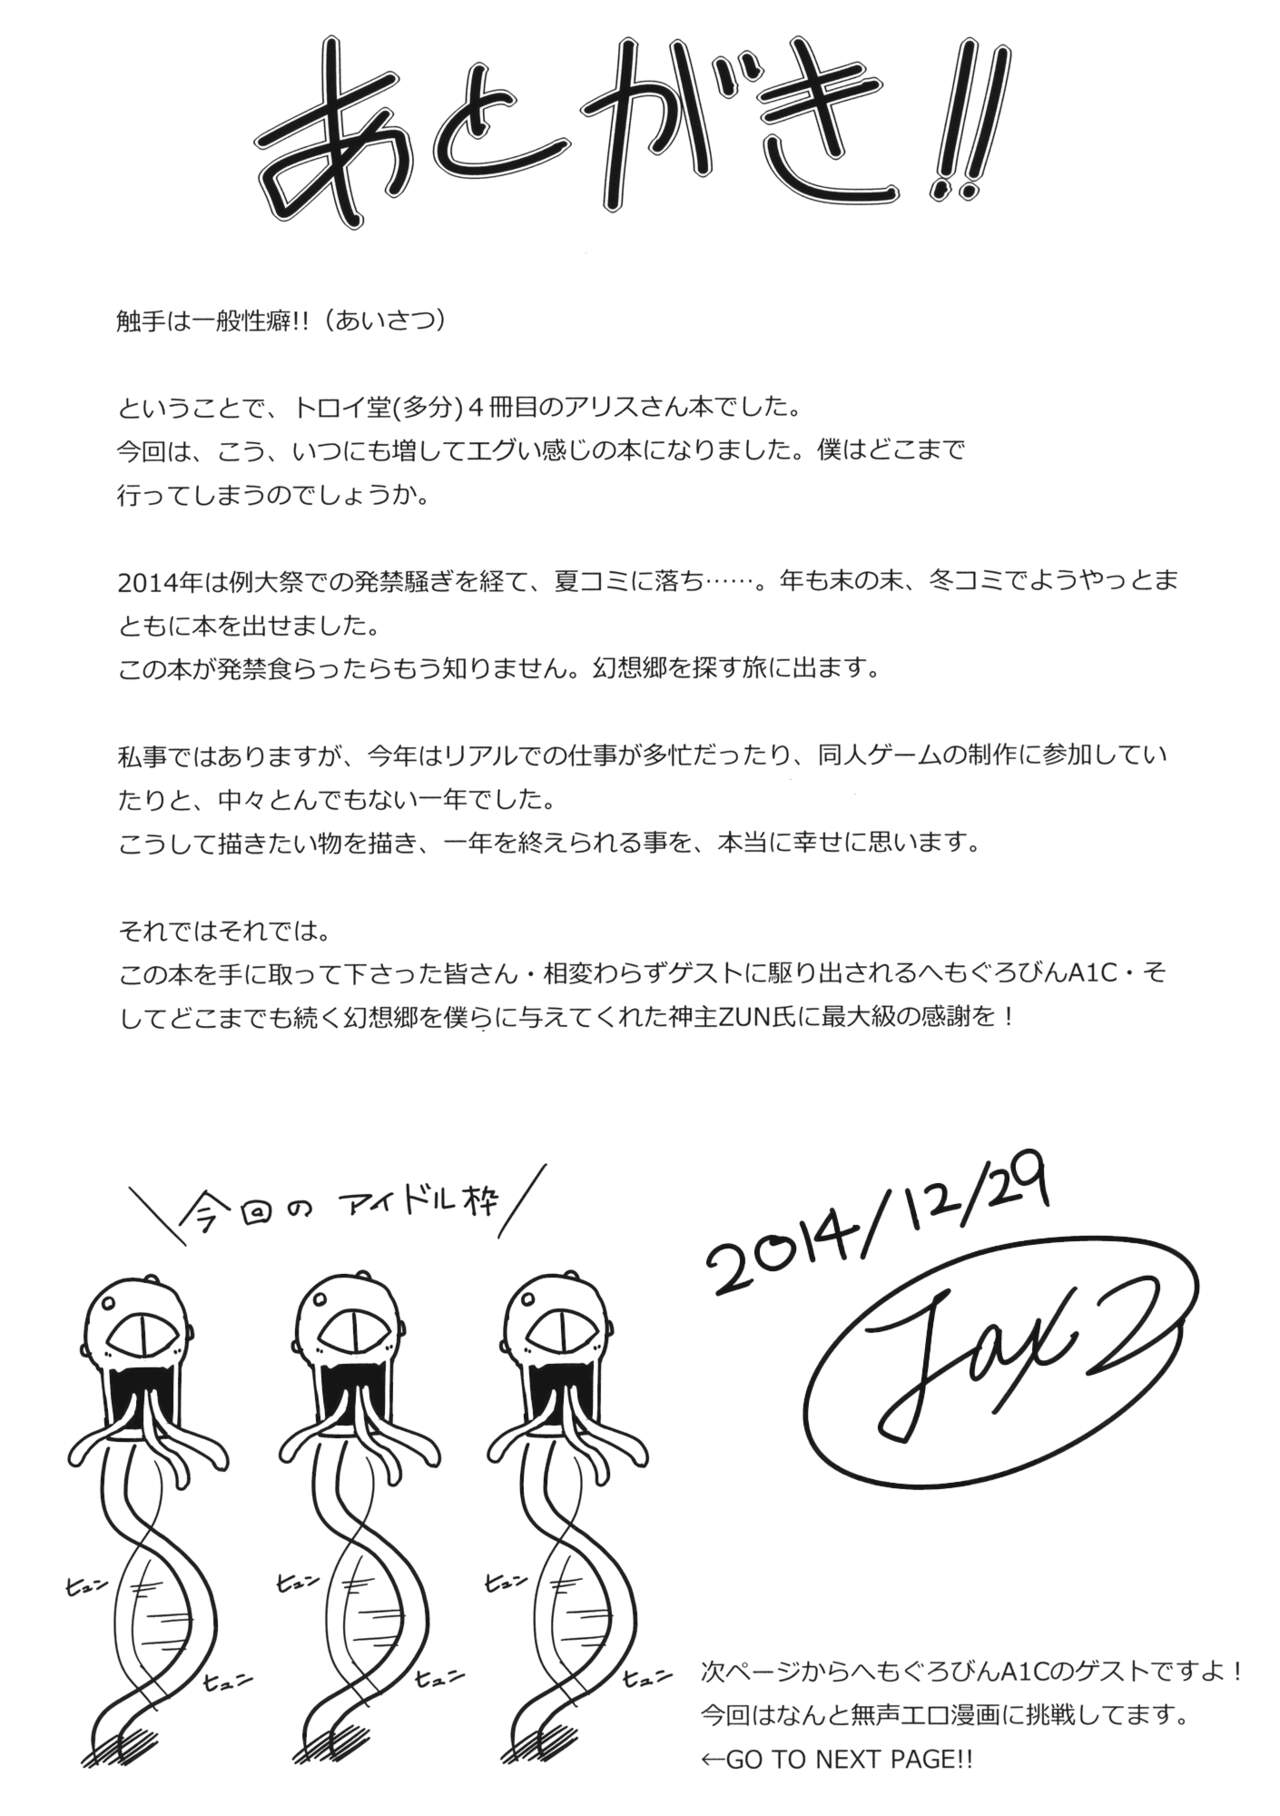 あとがき!!
触手は一般性癖!!（あいさつ）
ということで、トロイ堂(多分)４冊目のアリスさん本でした。
今回は、こう、いつにも増してエグい感じの本になりました。僕はどこまで
行ってしまうのでしょうか。
2014年は例大祭での発禁騒ぎを経て、夏コミに落ち……。年も末の末、冬コミでようやっとま
ともに本を出せました。
この本が発禁食らったらもう知りません。幻想郷を探す旅に出ます。
私事ではありますが、今年はリアルでの仕事が多忙だったり、同人ゲームの制作に参加してい
たりと、中々とんでもない一年でした。
こうして描きたい物を描き、一年を終えられる事を、本当に幸せに思います。
それではそれでは。
この本を手に取って下さった皆さん・相変わらずゲストに駆り出されるへもぐろびんA1C・そ
してどこまでも続く幻想郷を僕らに与えてくれた神主ZUN氏に最大級の感謝を！
今回の アイドル枠
2014/12/29
Jax2
ヒュン
ヒュン
ヒュン
ヒュン
ヒュン
ヒュン
次ページからへもぐろびんA1Cのゲストですよ！
今回はなんと無声エロ漫画に挑戦してます。
←GO TO NEXT PAGE!!